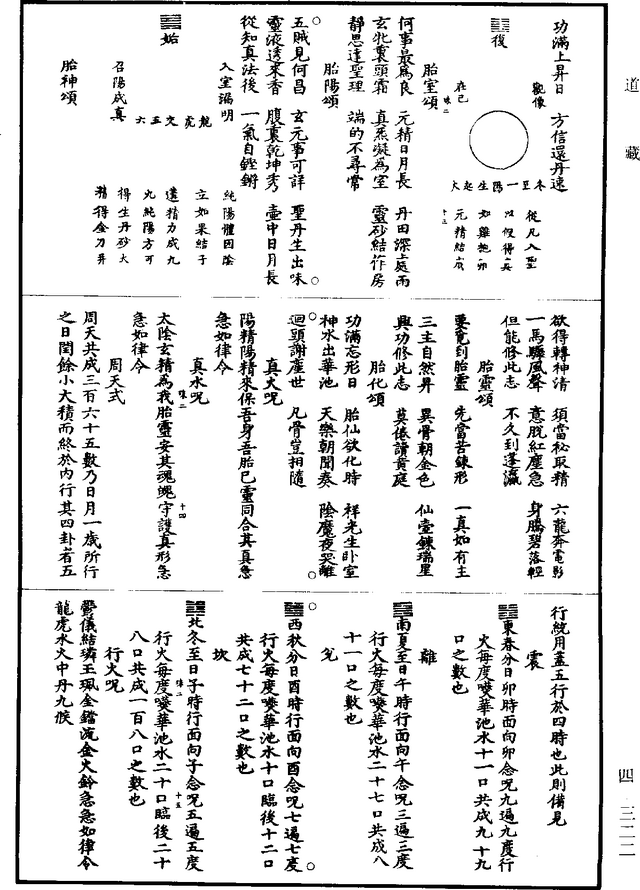 道藏
四·三二二
功滿上昇日　方信還丹速
復
觀像
在己
冬至一陽生起火
從凡入聖
以假得真
如雞抱卵
元精結成
胎室頌
何事最為良　元精日月長　丹田深處雨
玄牝裏頭霜　真炁凝為室　靈砂結作房
靜思達聖理　端的不尋常
胎陽頌
五賊見何昌　玄元事可詳　聖丹生出味
靈液透來香　腹裏乾坤秀　壺中日月長
從知真法後　一氣自鏗鏘
姤
入室漏明
召陽成真
龍虎交五六
純陽體因陰
立如果結子
遣精力成九
九純陽方可
得生丹砂火
精得金刀昇
胎神頌
欲得轉神清　須當秘取精　六龍奔電影
一馬驟風聲　意脫紅塵急　身騰碧落輕
但能修此志　不久到蓬瀛
胎靈頌
要覓到胎靈　先當苦鍊形　一真如有主
三主自然昇　異骨朝金色　仙壺鍊瑞星
興功修此志　莫倦讀黃庭
胎化頌
功滿忘形日　胎仙欲化時　祥光生卧室
神水出華池　天樂朝聞奏　陰魔夜哭離
迴頭謝塵世　凡骨豈相隨
真火呪
陽精陽精來保吾身吾胎已靈同合其真急
急如律令
真水呪
太陰玄精為我胎靈安其魂魄守護真形急
急如律令
周天式
周天共成三百六十五數乃日月一歲所行
之日閏餘小大積而終於內行其四卦者五
行統用盡五行於四時也此則備見
震
東春分日卯時面向卯念呪九遍九度行
火每度嚥華池水十一口共成九十九
口之數也
離
南夏至日午時行面向午念呪三遍三度
行火每度嚥華池水二十七口共成八
十一口之數也
兌
西秋分日酉時行面向酉念呪七遍七度
行火每度嚥華池水十口臨後十二口
共成七十二口之數也
坎
北冬至日子時行面向子念呪五遍五度
行火每度嚥華池水二十口臨後二十
八口共成一百八口之數也
行火呪
鬱儀結璘玉珮金鐺流金火鈴急急如律令
龍虎水火中丹九候